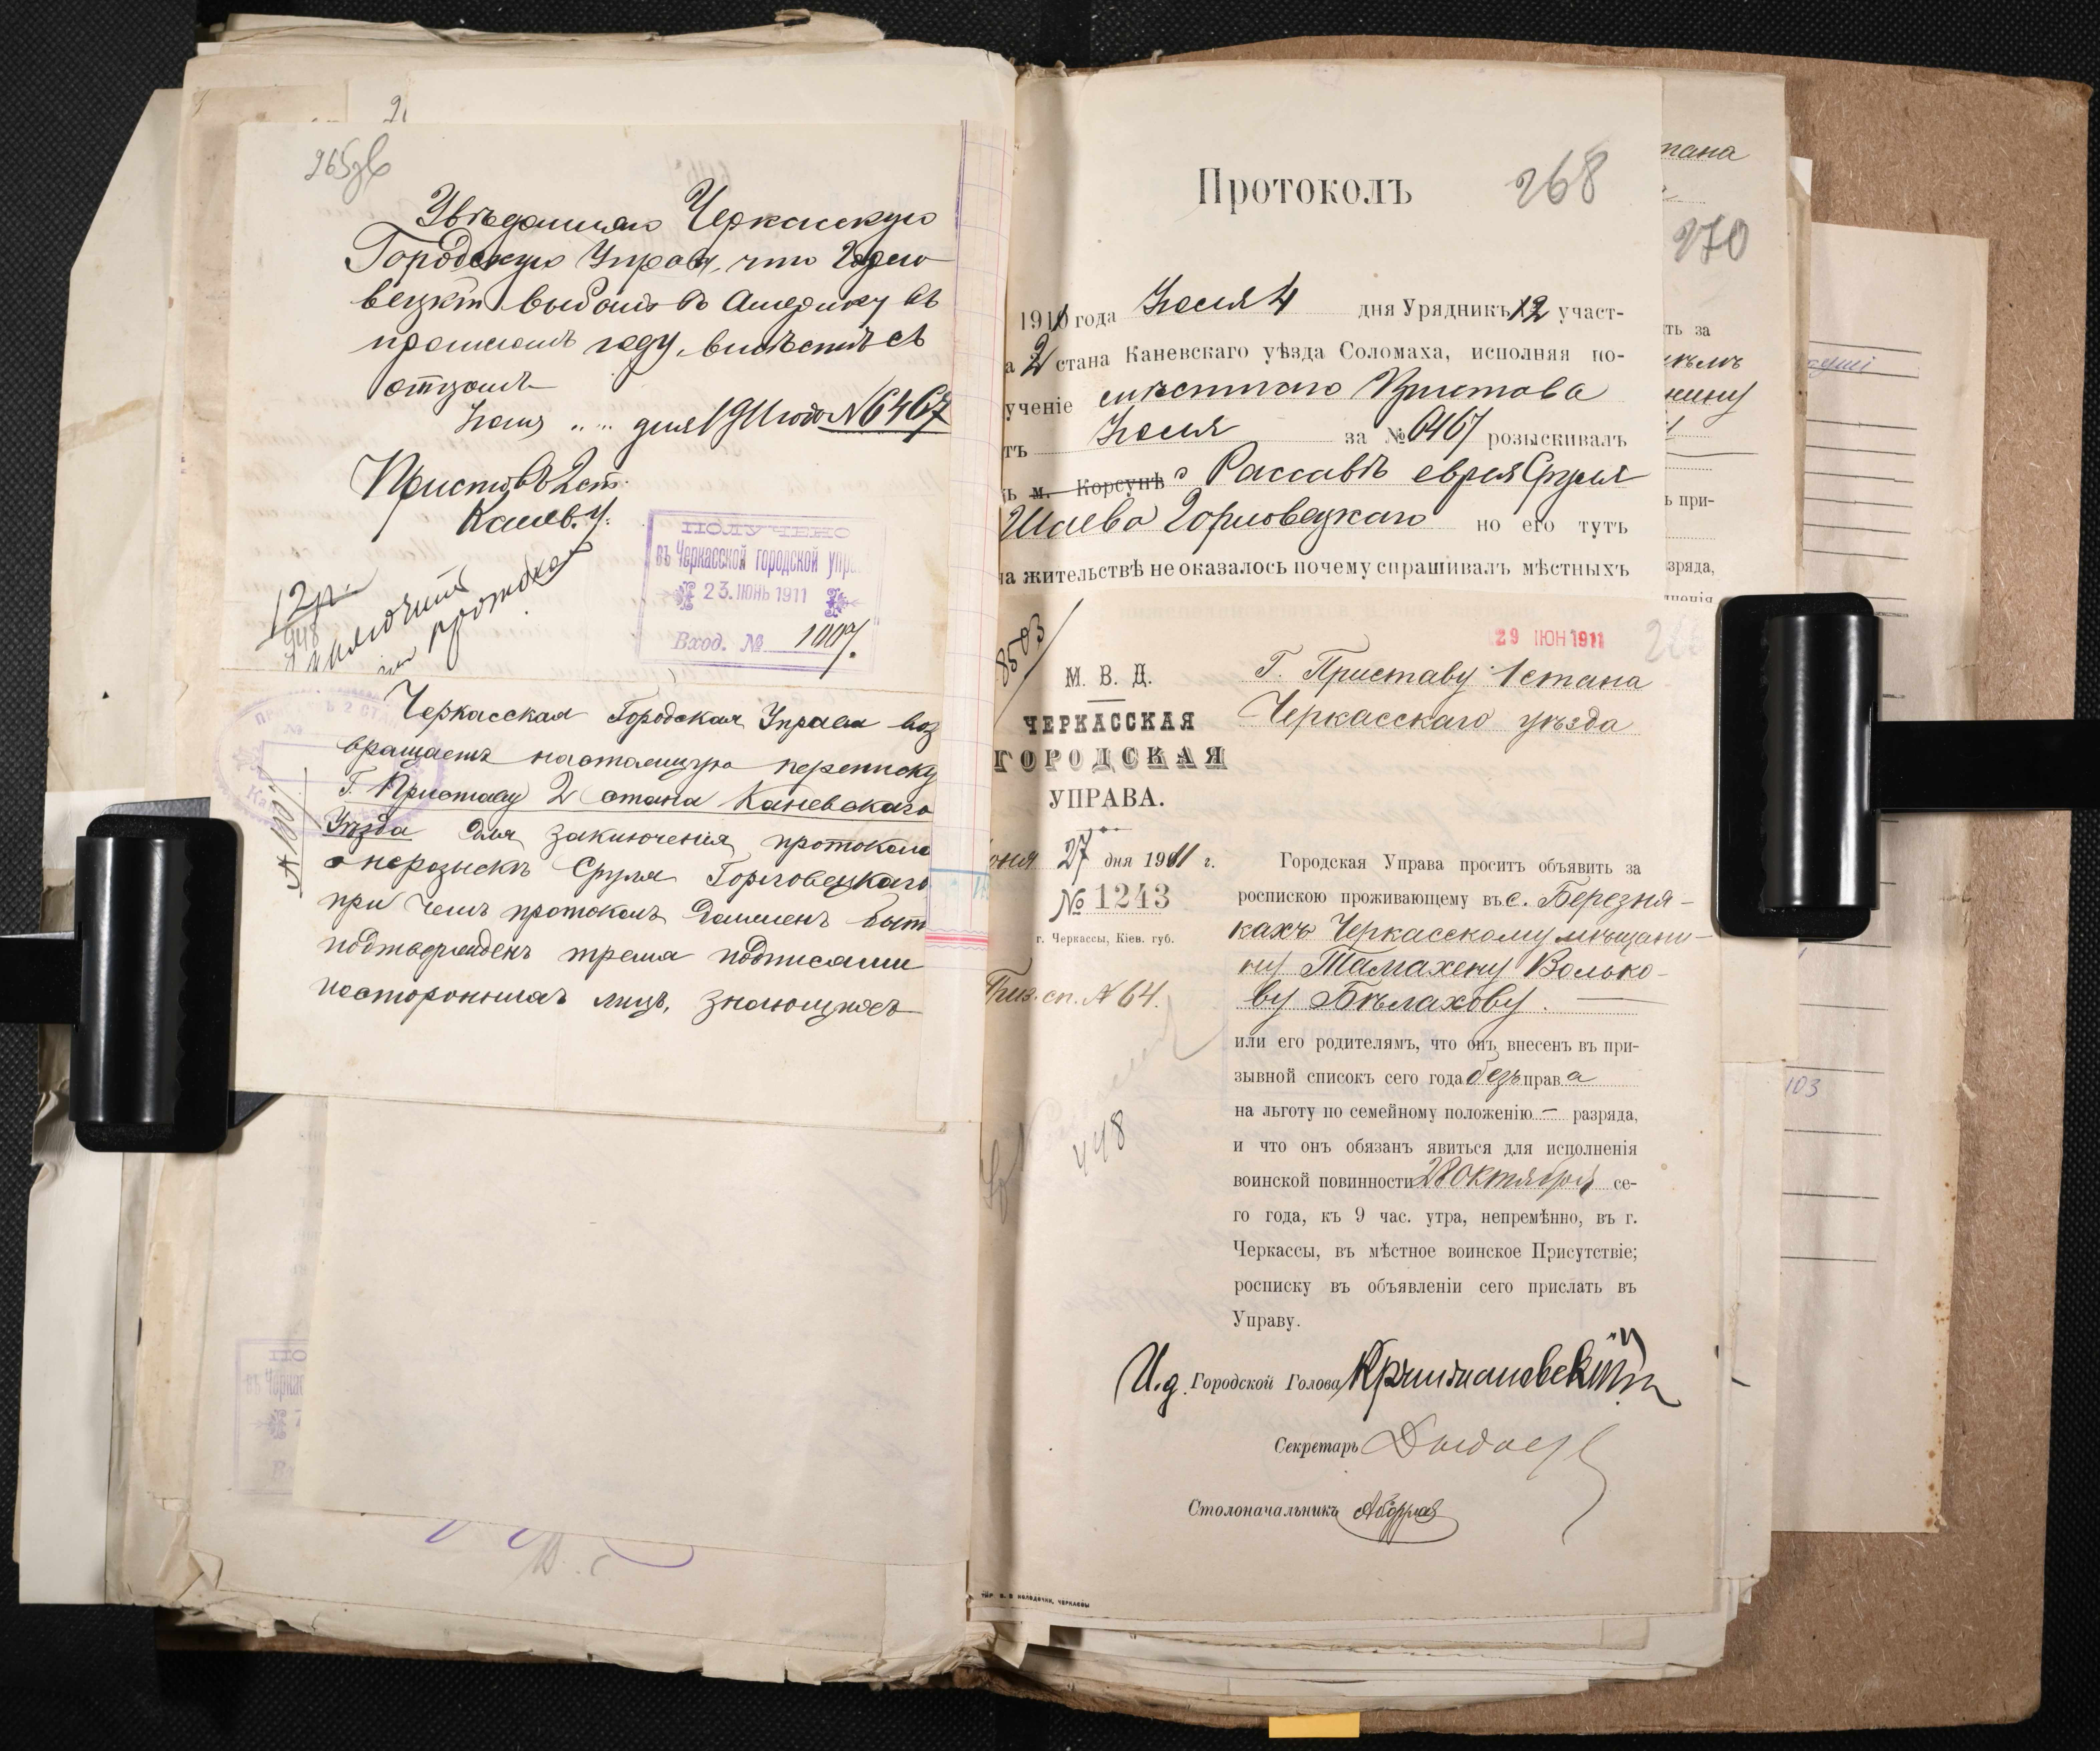 265об
Увѣдомляю Черкасскую
Городскую Управу, что Горло-
вецкій выбылъ въ Америку въ
прошломъ году, вмѣстѣ съ
отцомъ
дня 1911 года № 6467
Приставъ 2 ст.
Канев. у.
ПОЛУЧЕНО
въ Черкасской городской упр
23. ІЮНЬ 1911
Вход. № 1007.
12 р.
448
протокол
Черкасская Городская Управа воз
вращаетъ настоящую переписку
Г. Приставу 2 стана Каневскаго
Уѣзда для заключенія протокола
о нерозыскѣ Сруля Горловецкаго
при чемъ протоколъ долженъ быт
подтвержденъ тремя подписами
постороннихъ лицъ, знающихъ
№ 1007
Протоколъ
268
1911 года Іюля 4 дня Урядникъ 12 участ-
а 2 стана Каневскаго уѣзда Соломаха, исполняя по-
ученіе мѣстнаго Пристава
тъ Іюля за № 6467 розыскивалъ
ъ м. Корсунѣ с Рассавѣ еврея Сруля
Шаева Горловецкаго но его тутъ
на жительствѣ не оказалось почему спрашивалъ мѣстныхъ
8503
29 ІЮН 1911
М. В. Д.
ЧЕРКАССКАЯ
ГОРОДСКАЯ
УПРАВА.
Г. Приставу 1 стана
Черкасскаго уѣзда
юня 27 дня 1911 г.
№ 1243
г. Черкассы, Кіев. губ.
Приз. сп. № 64.
448
Городская Управа проситъ объявить за
роспискою проживающему въ с. Березня-
кахъ Черкасскому мѣщани-
ну Тамахену Волько-
ву Бѣлахову.
или его родителямъ, что онъ внесенъ въ при-
зывной списокъ сего года безъ права
на льготу по семейному положенію — разряда,
и что онъ обязанъ явиться для исполненія
воинской повинности 28 октября се-
го года, къ 9 час. утра, непремѣнно, въ г.
Черкассы, въ мѣстное воинское Присутствіе;
росписку въ объявленіи сего прислать въ
Управу.
И.д. Городской Голова
Секретарь
Столоначальникъ
270
тана
ть за
ь при-
зряда,
103